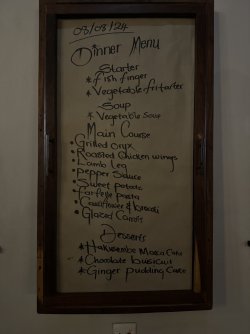 03/08/24
Dinner Menu
Starter
* fish finger
* Vegetable fritarter
Soup
* Vegetable Soup
Main Course
• Grilled Oryx
• Roasted Chicken wings
• Lamb Leg
• pepper Sauce
• Sweet potato
• Farfelle pasta
• Cauliflower & brocoli
• Glazed Carrots
Desserts
* Hakusembe Mosca Cake
* Chocolate buiscuit
* Ginger pudding Cake